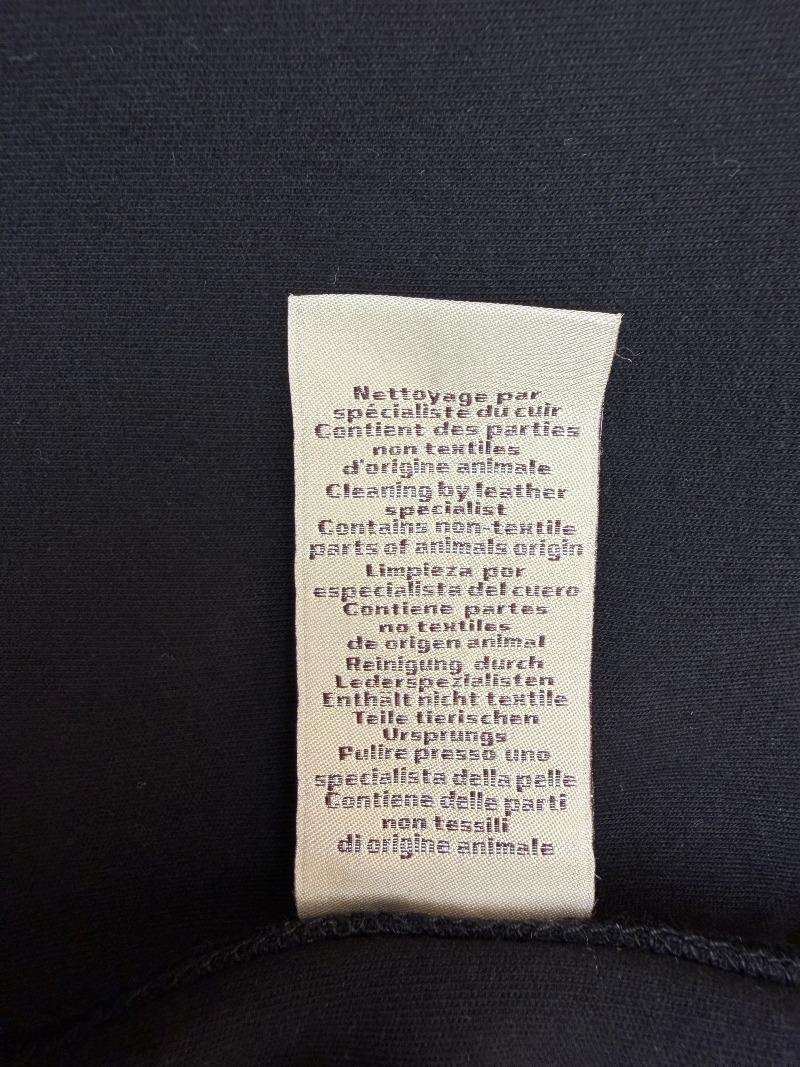 Nettoyage par
spécialiste du cuir
Contient des parties
non textiles
d'origine animale
Cleaning by leather
specialist
Contains non-textile
parts of animals origin
Limpieza por
especialista del cuero
Contiene partes
no textiles
de origen animal
Reinigung durch
Lederspezialisten
Enthält nicht textile
Teile tierischen
Ursprungs
Pulire presso uno
specialista della pelle
Contiene delle parti
non tessili
di origine animale